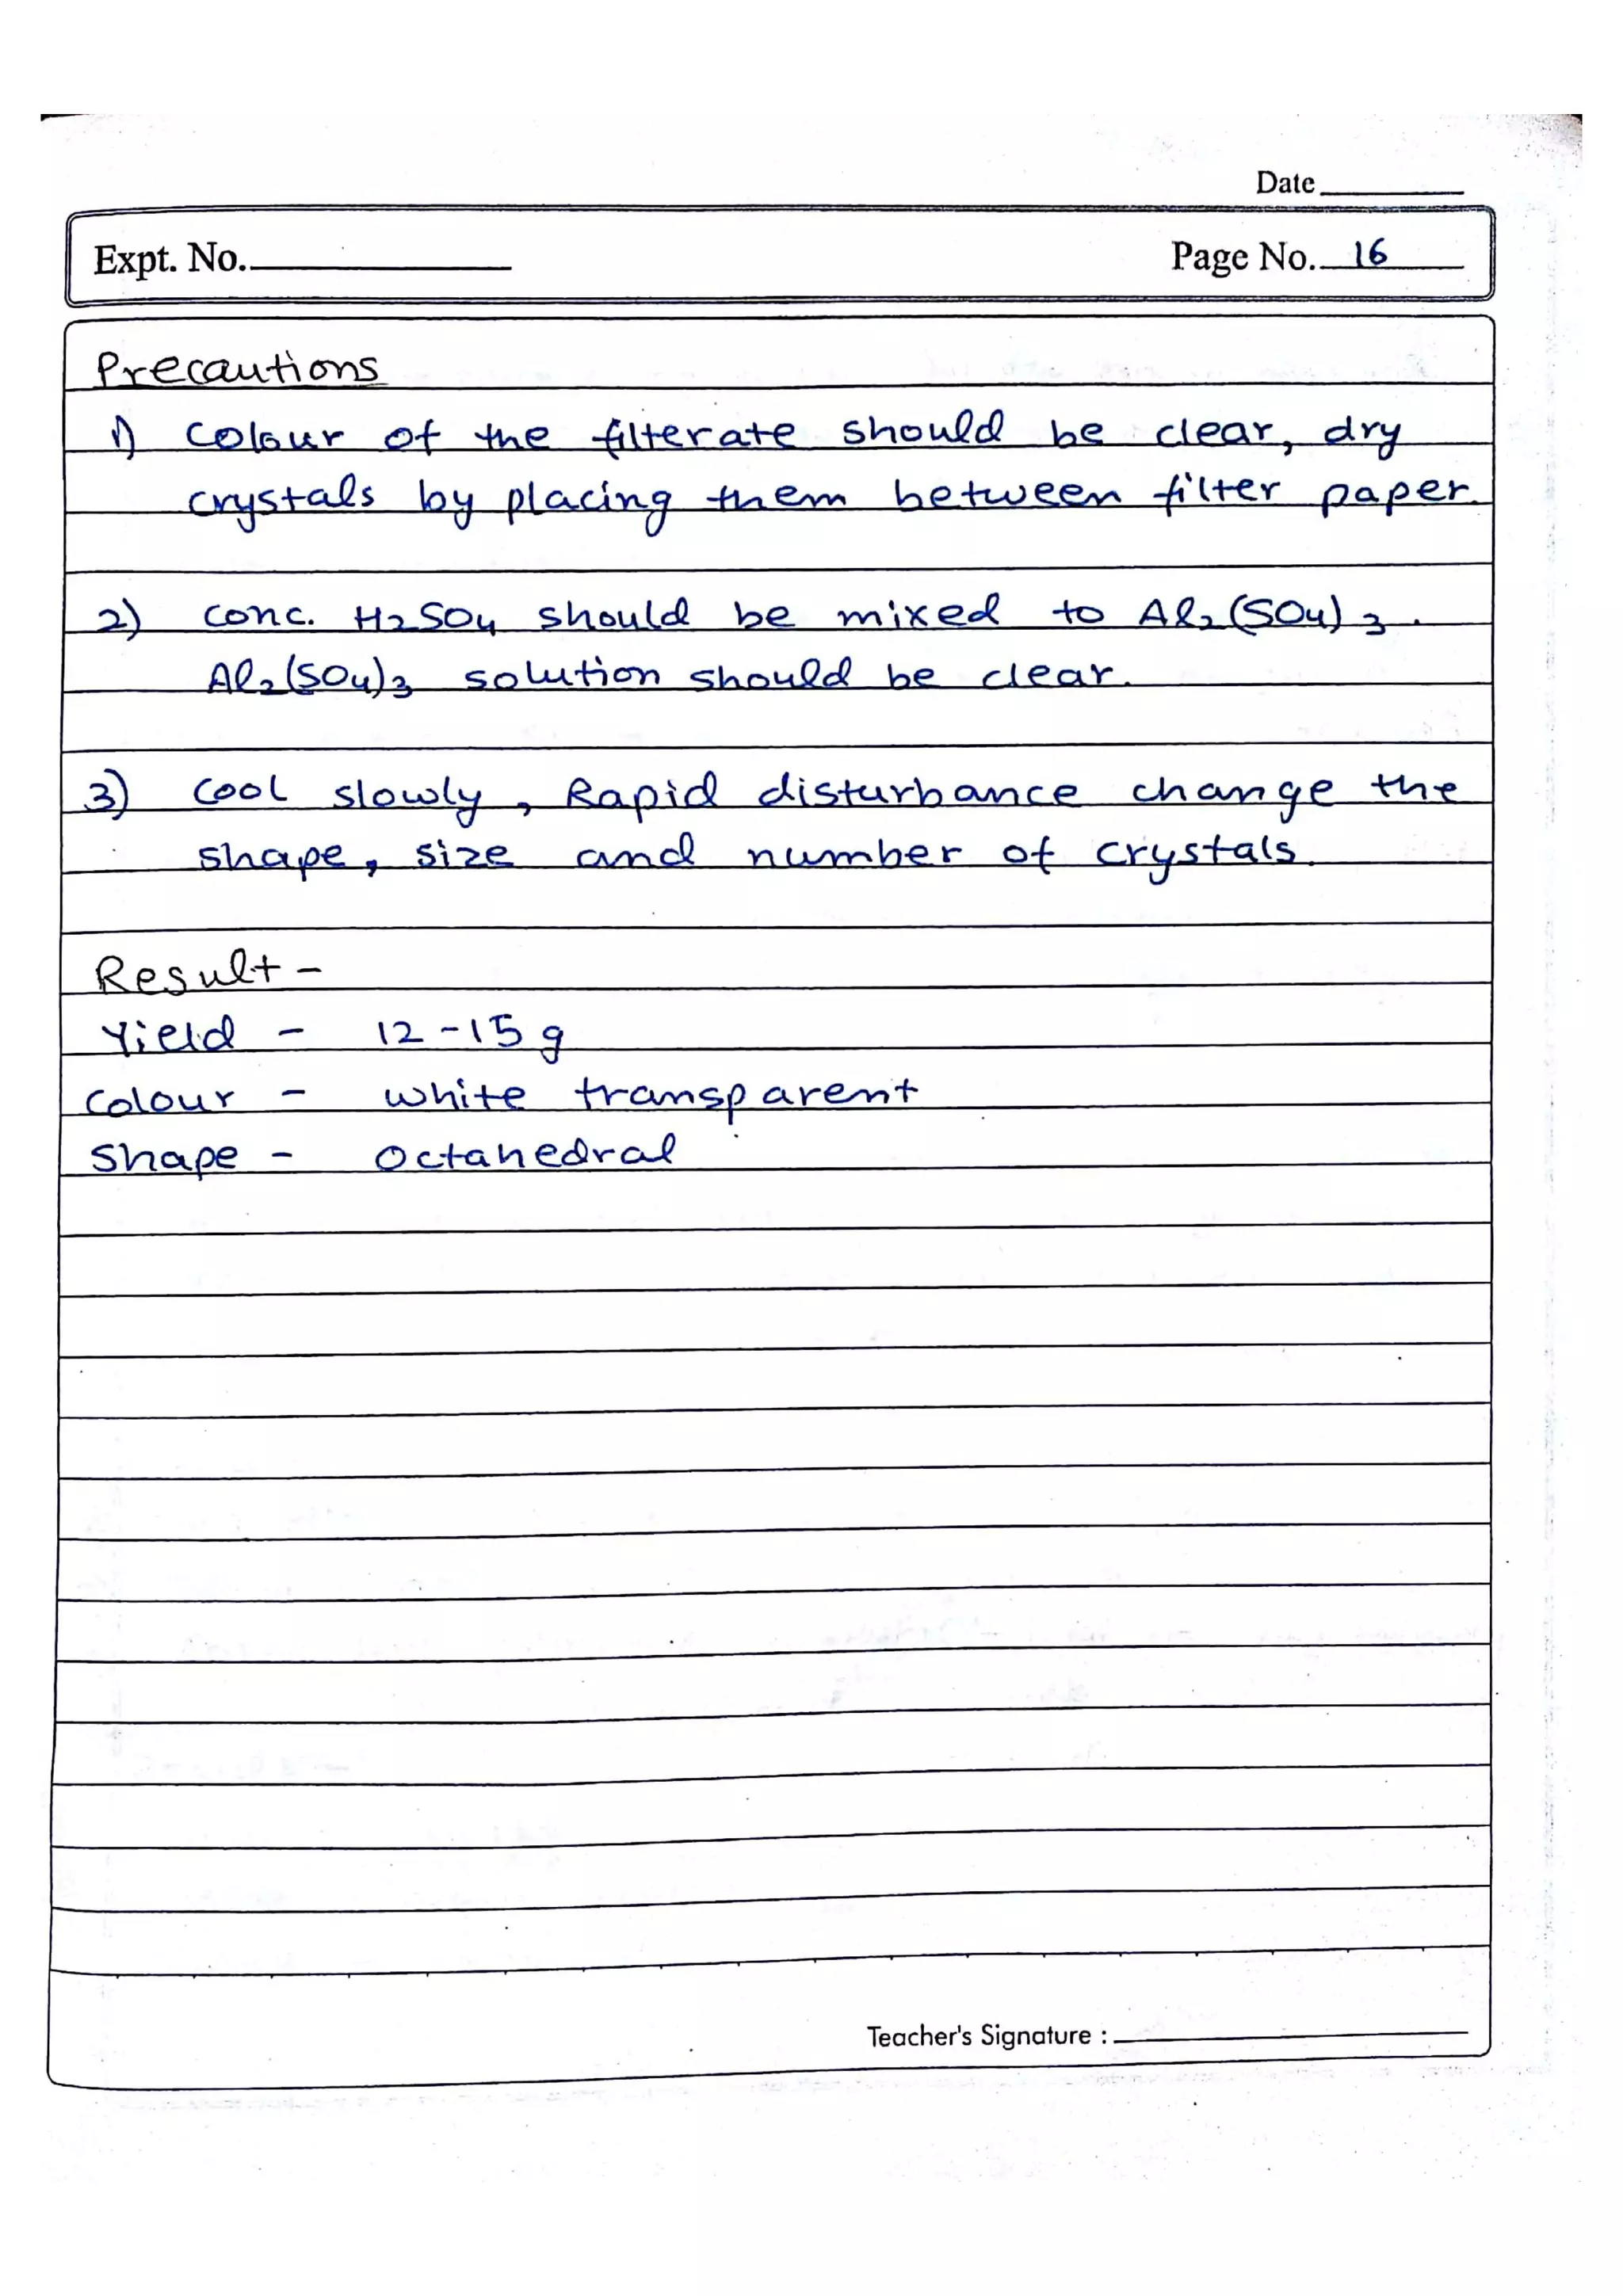 Date
Expt. No. Page No. 16
Precautions
1) Colour of the filterate should be clear, dry
crystals by placing them between filter paper.
2) Conc. H2SO4 should be mixed to Al2(SO4)3.
Al2(SO4)3 solution should be clear.
3) Cool slowly, Rapid disturbance change the
shape, size and number of crystals.
Result -
Yield - 12-15 g
Colour - white transparent
Shape - Octahedral
Teacher's Signature :